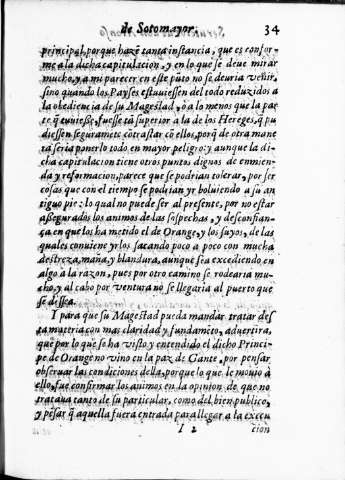 de Sotomayor. 34
principal, porque hazẽ tanta instancia, que es confor-
me a la dicha capitulacion, y en lo que se deue mirar
mucho, y a mi parecer en este pũto no se deuria venir,
sino quando los Payses estuuiessen del todo reduzidos a
la obediencia de su Magestad, o a lo menos que la par
te q̃ tuuiesse, fuesse tã superior a la de los Hereges, q̃ pu
diessen seguramẽte cõtrastar cõ ellos, porq̃ de otra mane
ra seria ponerlo todo en mayor peligro: y aunque la di-
cha capitulacion tiene otros puntos dignos de enmien-
da y reformacion, parece que se podrian tolerar, por ser
cosas que con el tiempo se podrian yr boluiendo a su an
tiguo pie: lo qual no puede ser al presente, por no estar
assegurados los animos de las sospechas, y desconfian-
ça en que los ha metido el de Orange, y los suyos, de las
quales conuiene yrlos sacando poco a poco con mucha
destreza, maña, y blandura, aunque sea excediendo en
algo a la razon, pues por otro camino se rodearia mu-
cho, y al cabo por ventura no se llegaria al puerto que
se dessea.
Y para que su Magestad pueda mandar tratar des
ta materia con mas claridad y fundamẽto, aduertira,
que por lo que se ha visto, y entendido el dicho Princi-
pe de Orange no vino en la paz de Gante, por pensar
obseruar las condiciones della, porque lo que le mouio à
ello, fue confirmar los animos en la opinion de que no
trataua tanto de su particular, como del bien publico,
y pẽsar q̃ aquella fuera entrada para llegar a la execu
I 2 cion